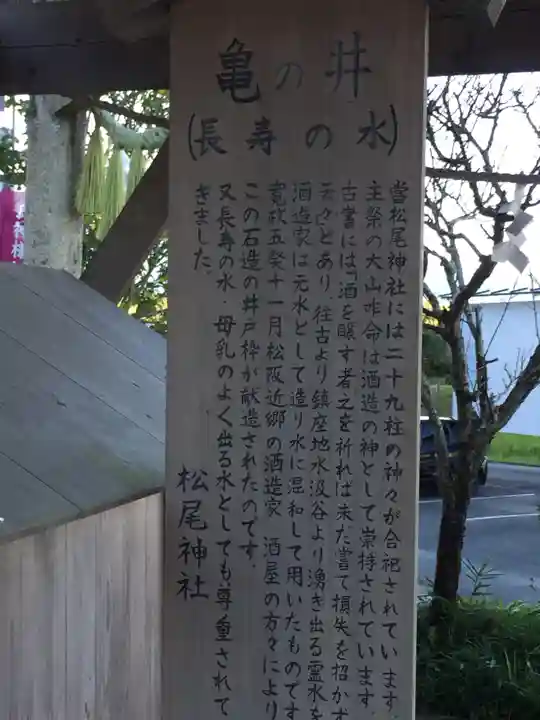 亀の井
(長寿の水)
當松尾神社には二十九柱の神々が合祀されています。
主祭の大山咋命は酒造の神として崇持されています。
古書には「酒を醸す者之を祈れば未だ嘗て損失を招かず
云々とあり、往古より鎮座地水汲谷より湧き出る霊水を
酒造家は元水として造り水に混和して用いたものです
寛政五癸十一月松阪近郷の酒造家 酒屋の方々により
この石造の井戸枠が献造されたのです。
又長寿の水・母乳のよく出る水としても尊重されて
きました。
松尾神社